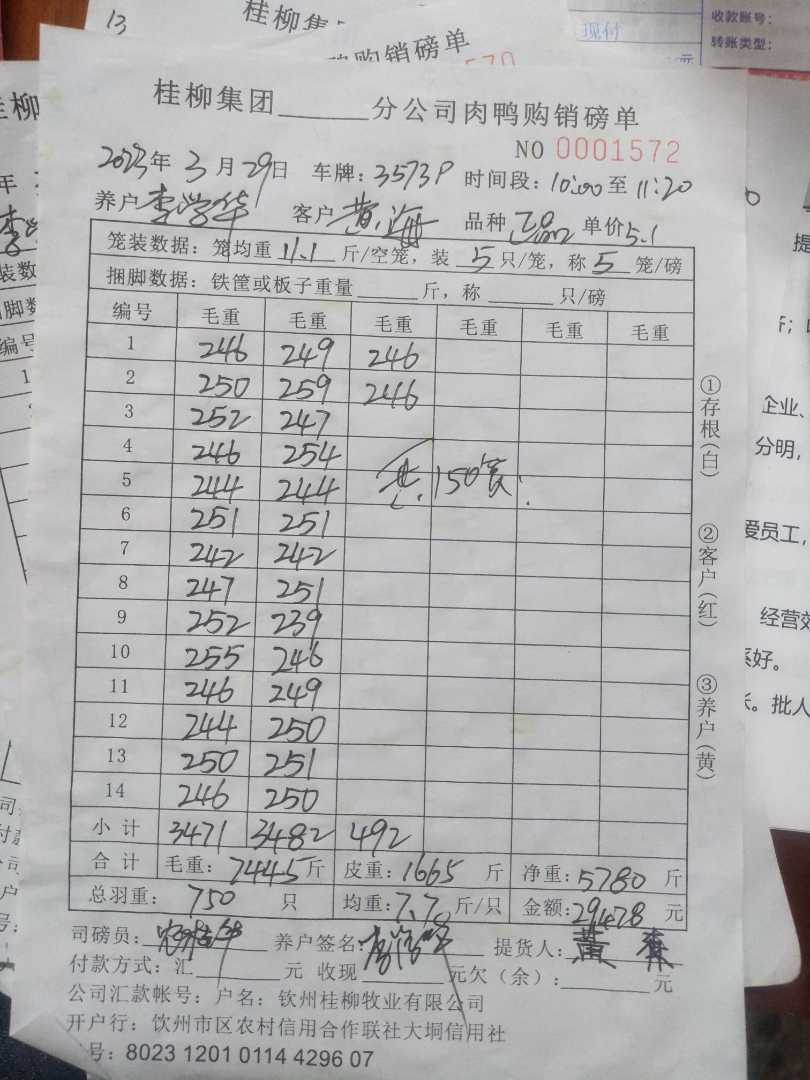 13
桂柳集
购销磅单
570
现付
元
收款账号：
转账类型：
桂柳
桂柳集团______分公司肉鸭购销磅单
NO 0001572
2023年3月29日 车牌：3573P 时间段：10:00至11:20
养户李学华 客户黄海 品种正品 单价5.1
笼装数据：笼均重11.1斤/空笼，装5只/笼，称5笼/磅
捆脚数据：铁筐或板子重量______斤，称______只/磅
编号 毛重 毛重 毛重 毛重 毛重 毛重
1 246 249 246
2 250 259 246
3 252 247
4 246 254
5 244 244 共150笼
6 251 251
7 242 242
8 247 251
9 252 239
10 255 246
11 246 249
12 244 250
13 250 251
14 246 250
小计 3471 3482 492
合计 毛重：7445斤 皮重：1665斤 净重：5780斤
总羽重：750只 均重：7.70斤/只 金额：29478元
司磅员： 养户签名： 提货人：黄
付款方式：汇______元 收现______元欠（余）：______元
公司汇款帐号：户名：钦州桂柳牧业有限公司
开户行：钦州市区农村信用合作联社大垌信用社
号：8023 1201 0114 4296 07
①存根（白）
②客户（红）
③养户（黄）
提
企业、
分明，
爱员工，
经营效
系好。
长。批人